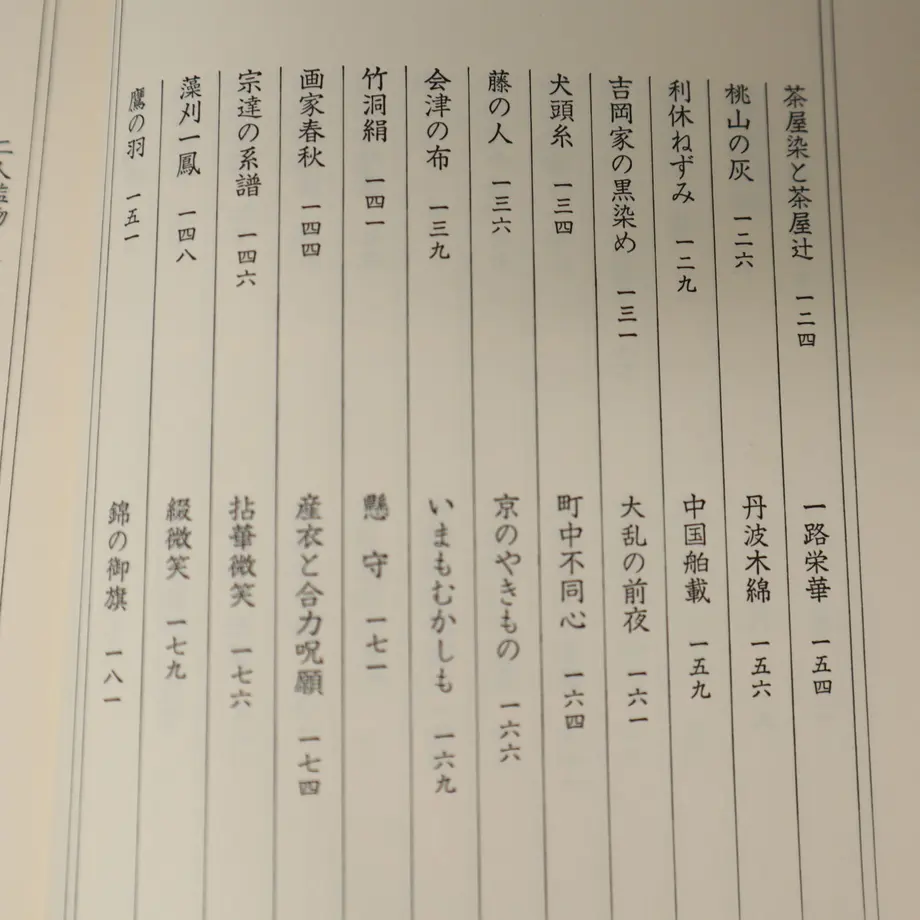 茶屋染と茶屋辻 一二四
桃山の灰 一二六
利休ねずみ 一二九
吉岡家の黒染め 一三一
犬頭糸 一三四
藤の人 一三六
会津の布 一三九
竹洞絹 一四一
画家春秋 一四四
宗達の系譜 一四六
藻刈一鳳 一四八
鷹の羽 一五一
一路栄華 一五四
丹波木綿 一五六
中国舶載 一五九
大乱の前夜 一六一
町中不同心 一六四
京のやきもの 一六六
いまもむかしも 一六九
懸守 一七一
産衣と合力呪願 一七四
拈華微笑 一七六
綴微笑 一七九
錦の御旗 一八一